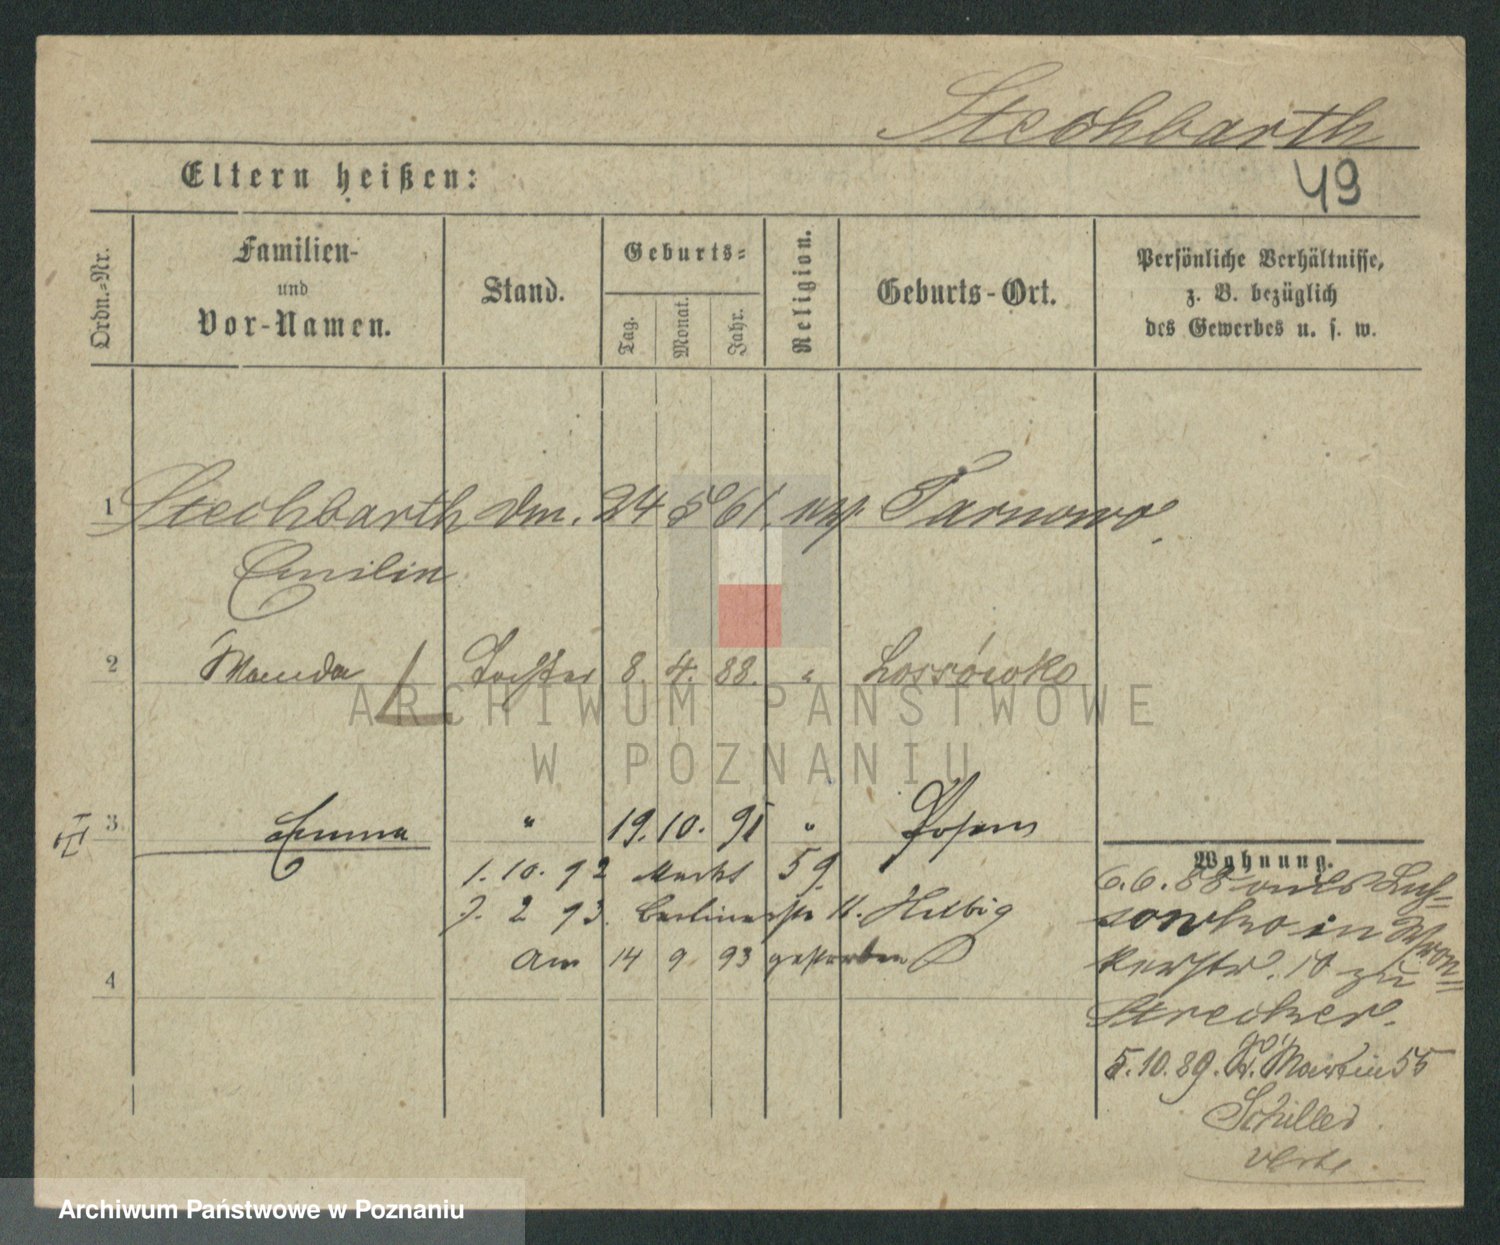 Stechbarth
49
Eltern heißen:
Ordn.-Nr.
Familien-
und
Vor-Namen.
Stand.
Geburts-
Tag.
Monat.
Jahr.
Religion.
Geburts-Ort.
Persönliche Verhältnisse,
z. B. bezüglich
des Gewerbes u. s. w.
1 Stechbarth 24 5 61. Tarnowo.
Emilin
2 Wanda Tochter 8. 4. 88. " Lossówko
3 Emma " 19. 10. 91 " Posen
1. 10. 92 Markt 59.
7. 2 93. Berlinerstr 11. Helbig
am 14 9 93 gestorben
4
Wohnung.
6.6.88 aus Lus-
sowko in Wron-
kerstr. 10 zu
Strecker.
5.10.89. St. Martin 55
Schiller
ARCHIWUM PAŃSTWOWE
W POZNANIU
Archiwum Państwowe w Poznaniu